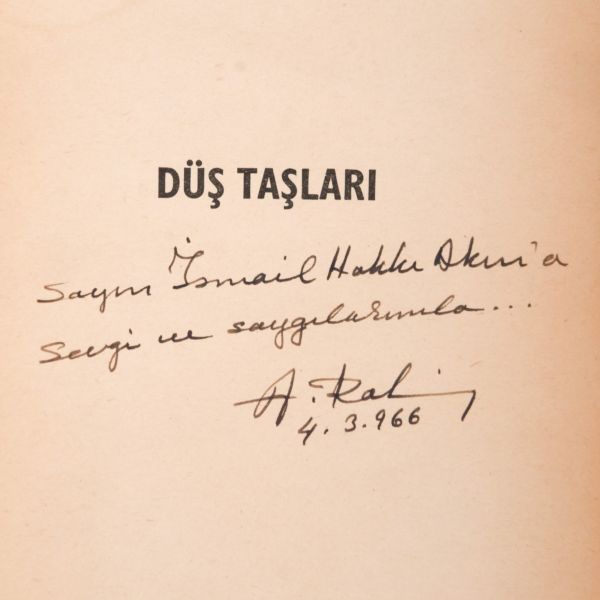 DÜŞ TAŞLARI
Sayın İsmail Hakkı Akın'a
Sevgi ve saygılarımla...
A. Rahi
4.3.966